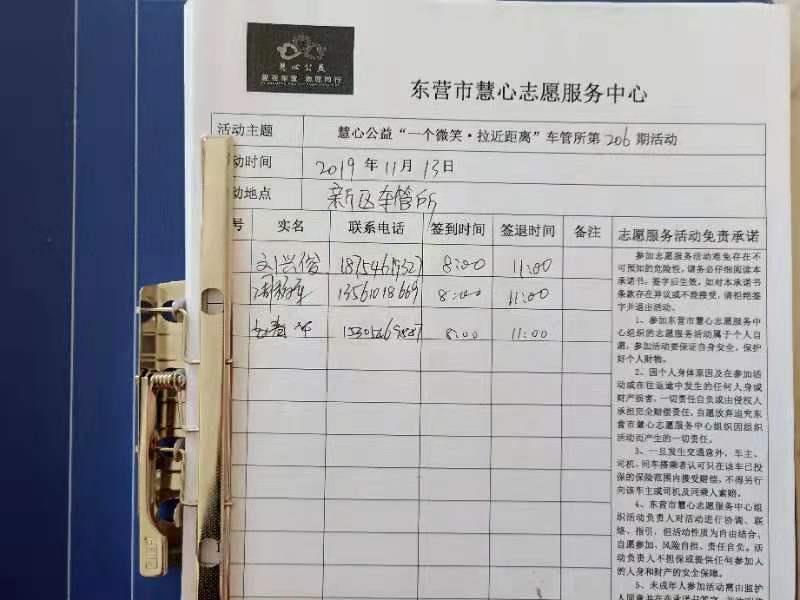 慧心公益
东营市慧心志愿服务中心
活动主题 慧心公益“一个微笑·拉近距离”车管所第206期活动
动时间 2019年11月13日
动地点 新区车管所
号 实名 联系电话 签到时间 签退时间 备注 志愿服务活动免责承诺
刘兴俊 8:00 11:00
13561018669 8:00 11:00
8:00 11:00
参加志愿服务活动难免存在不
可预知的危险性,请务必仔细阅读本
承诺书。签字后生效。如对本承诺书
条款存在异议或不能接受,请拒绝签
字并退出活动。
1、参加东营市慧心志愿服务中
心组织的志愿服务活动属于个人自
愿,参加活动要保证自身安全,保护
好个人财物。
2、因个人身体原因及在参加活
动或在往返途中发生的任何人身或
财产损害,一切责任自负或由侵权人
承担完全赔偿责任,自愿放弃追究东
营市慧心志愿服务中心组织因组织
活动而产生的一切责任。
3、一旦发生交通意外,车主、
司机、同车搭乘者认可只在该车已投
保的保险范围内接受赔偿,不得另行
向该车主或司机及同乘人索赔。
4、东营市慧心志愿服务中心组
织活动负责人对活动进行协调、联
络、指引,但活动性质为自由结合,
自愿参加、风险自担、责任自负。活
动负责人不担保或提供任何参加人
的人身和财产的安全保障。
5、未成年人参加活动需由监护